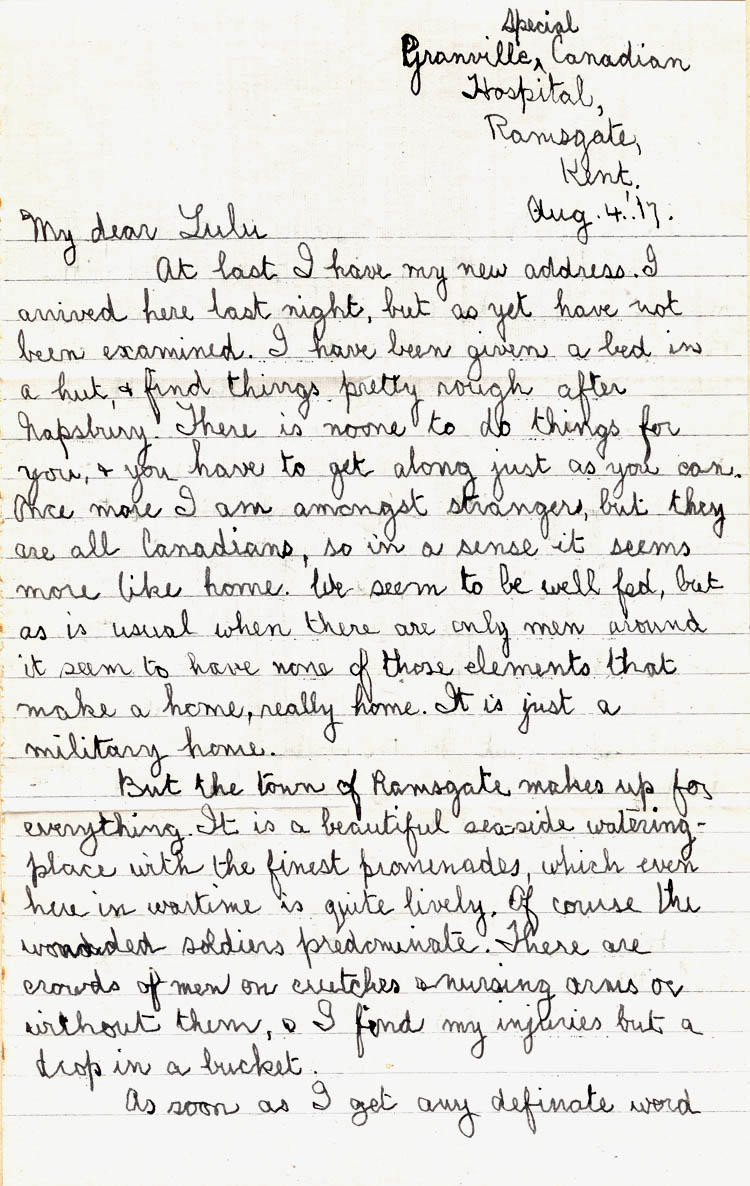 Special
Granville, Canadian
Hospital,
Ramsgate,
Kent.
Aug. 4.'17.
My dear Lulu
At last I have my new address. I
arrived here last night, but as yet have not
been examined. I have been given a bed in
a hut, & find things pretty rough after
Napsbury. There is noone to do things for
you, & you have to get along just as you can.
Once more I am amongst strangers, but they
are all Canadians, so in a sense it seems
more like home. We seem to be well fed, but
as is usual when there are only men around
it seem to have none of those elements that
make a home, really home. It is just a
military home.
But the town of Ramsgate makes up for
everything. It is a beautiful sea-side watering-
place with the finest promenades, which even
here in wartime is quite lively. Of course the
wounded soldiers predominate. There are
crowds of men on crutches & nursing arms or
without them, & I find my injuries but a
drop in a bucket.
As soon as I get any definate word